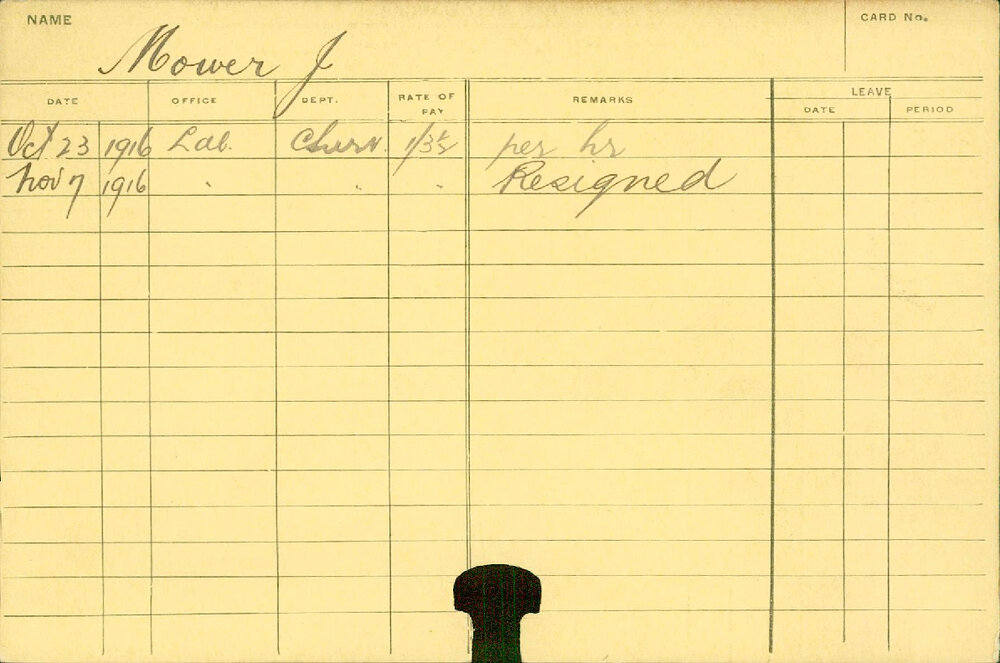 NAME
CARD No.
Mower J
DATE OFFICE DEPT. RATE OF PAY REMARKS LEAVE
DATE PERIOD
Oct 23 1916 Lab. per hr
Nov 7 1916 " " " Resigned